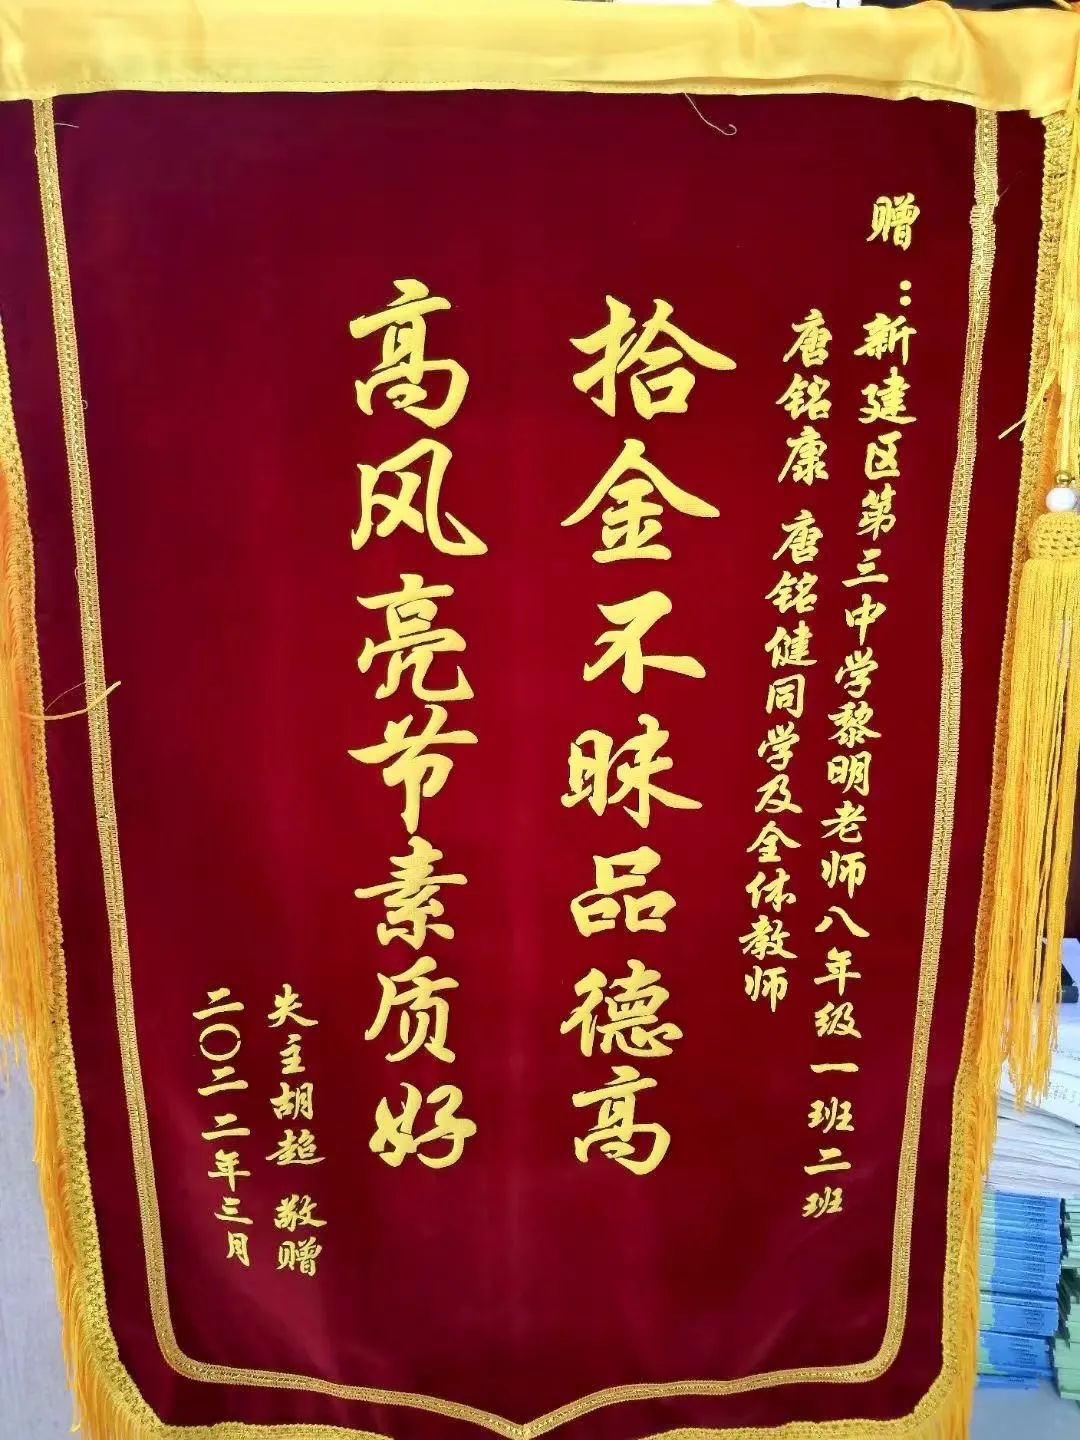 赠：新建区第三中学黎明老师八年级一班二班
唐铭康 唐铭健同学及全体教师
拾金不昧品德高
高风亮节素质好
失主胡超 敬赠
二〇二二年三月